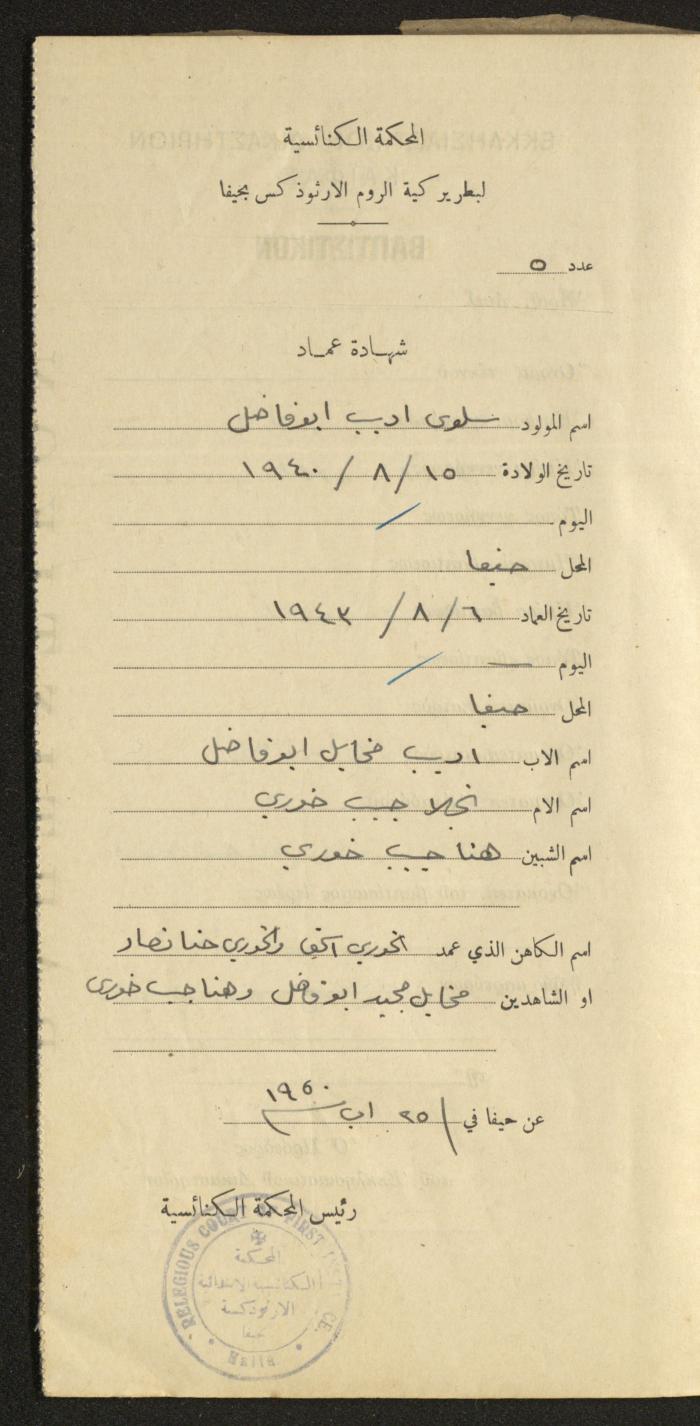 المحكمة الكنائسية
لبطريركية الروم الارثوذكس بحيفا
عدد ٥
شهادة عماد
اسم المولود سلوى اديب ابو فاضل
تاريخ الولادة ١٥ / ٨ / ١٩٤٠
اليوم
المحل حيفا
تاريخ العماد ٦ / ٨ / ١٩٤٣
اليوم —
المحل حيفا
اسم الاب اديب مخايل ابو فاضل
اسم الام نجلا حبيب خوري
اسم الشبين هنا حبيب خوري
اسم الكاهن الذي عمد الخوري اسحق والخوري حنا نصار
او الشاهدين مخايل مجيد ابو فاضل وهنا حبيب خوري
عن حيفا في ٢٥ اب ١٩٥٠
رئيس المحكمة الكنائسية
RELEGIOUS COUR FIRST CE.
المحكمة
الكنائسية الابتدائية
الارثوذكسية
حيفا
Haifa